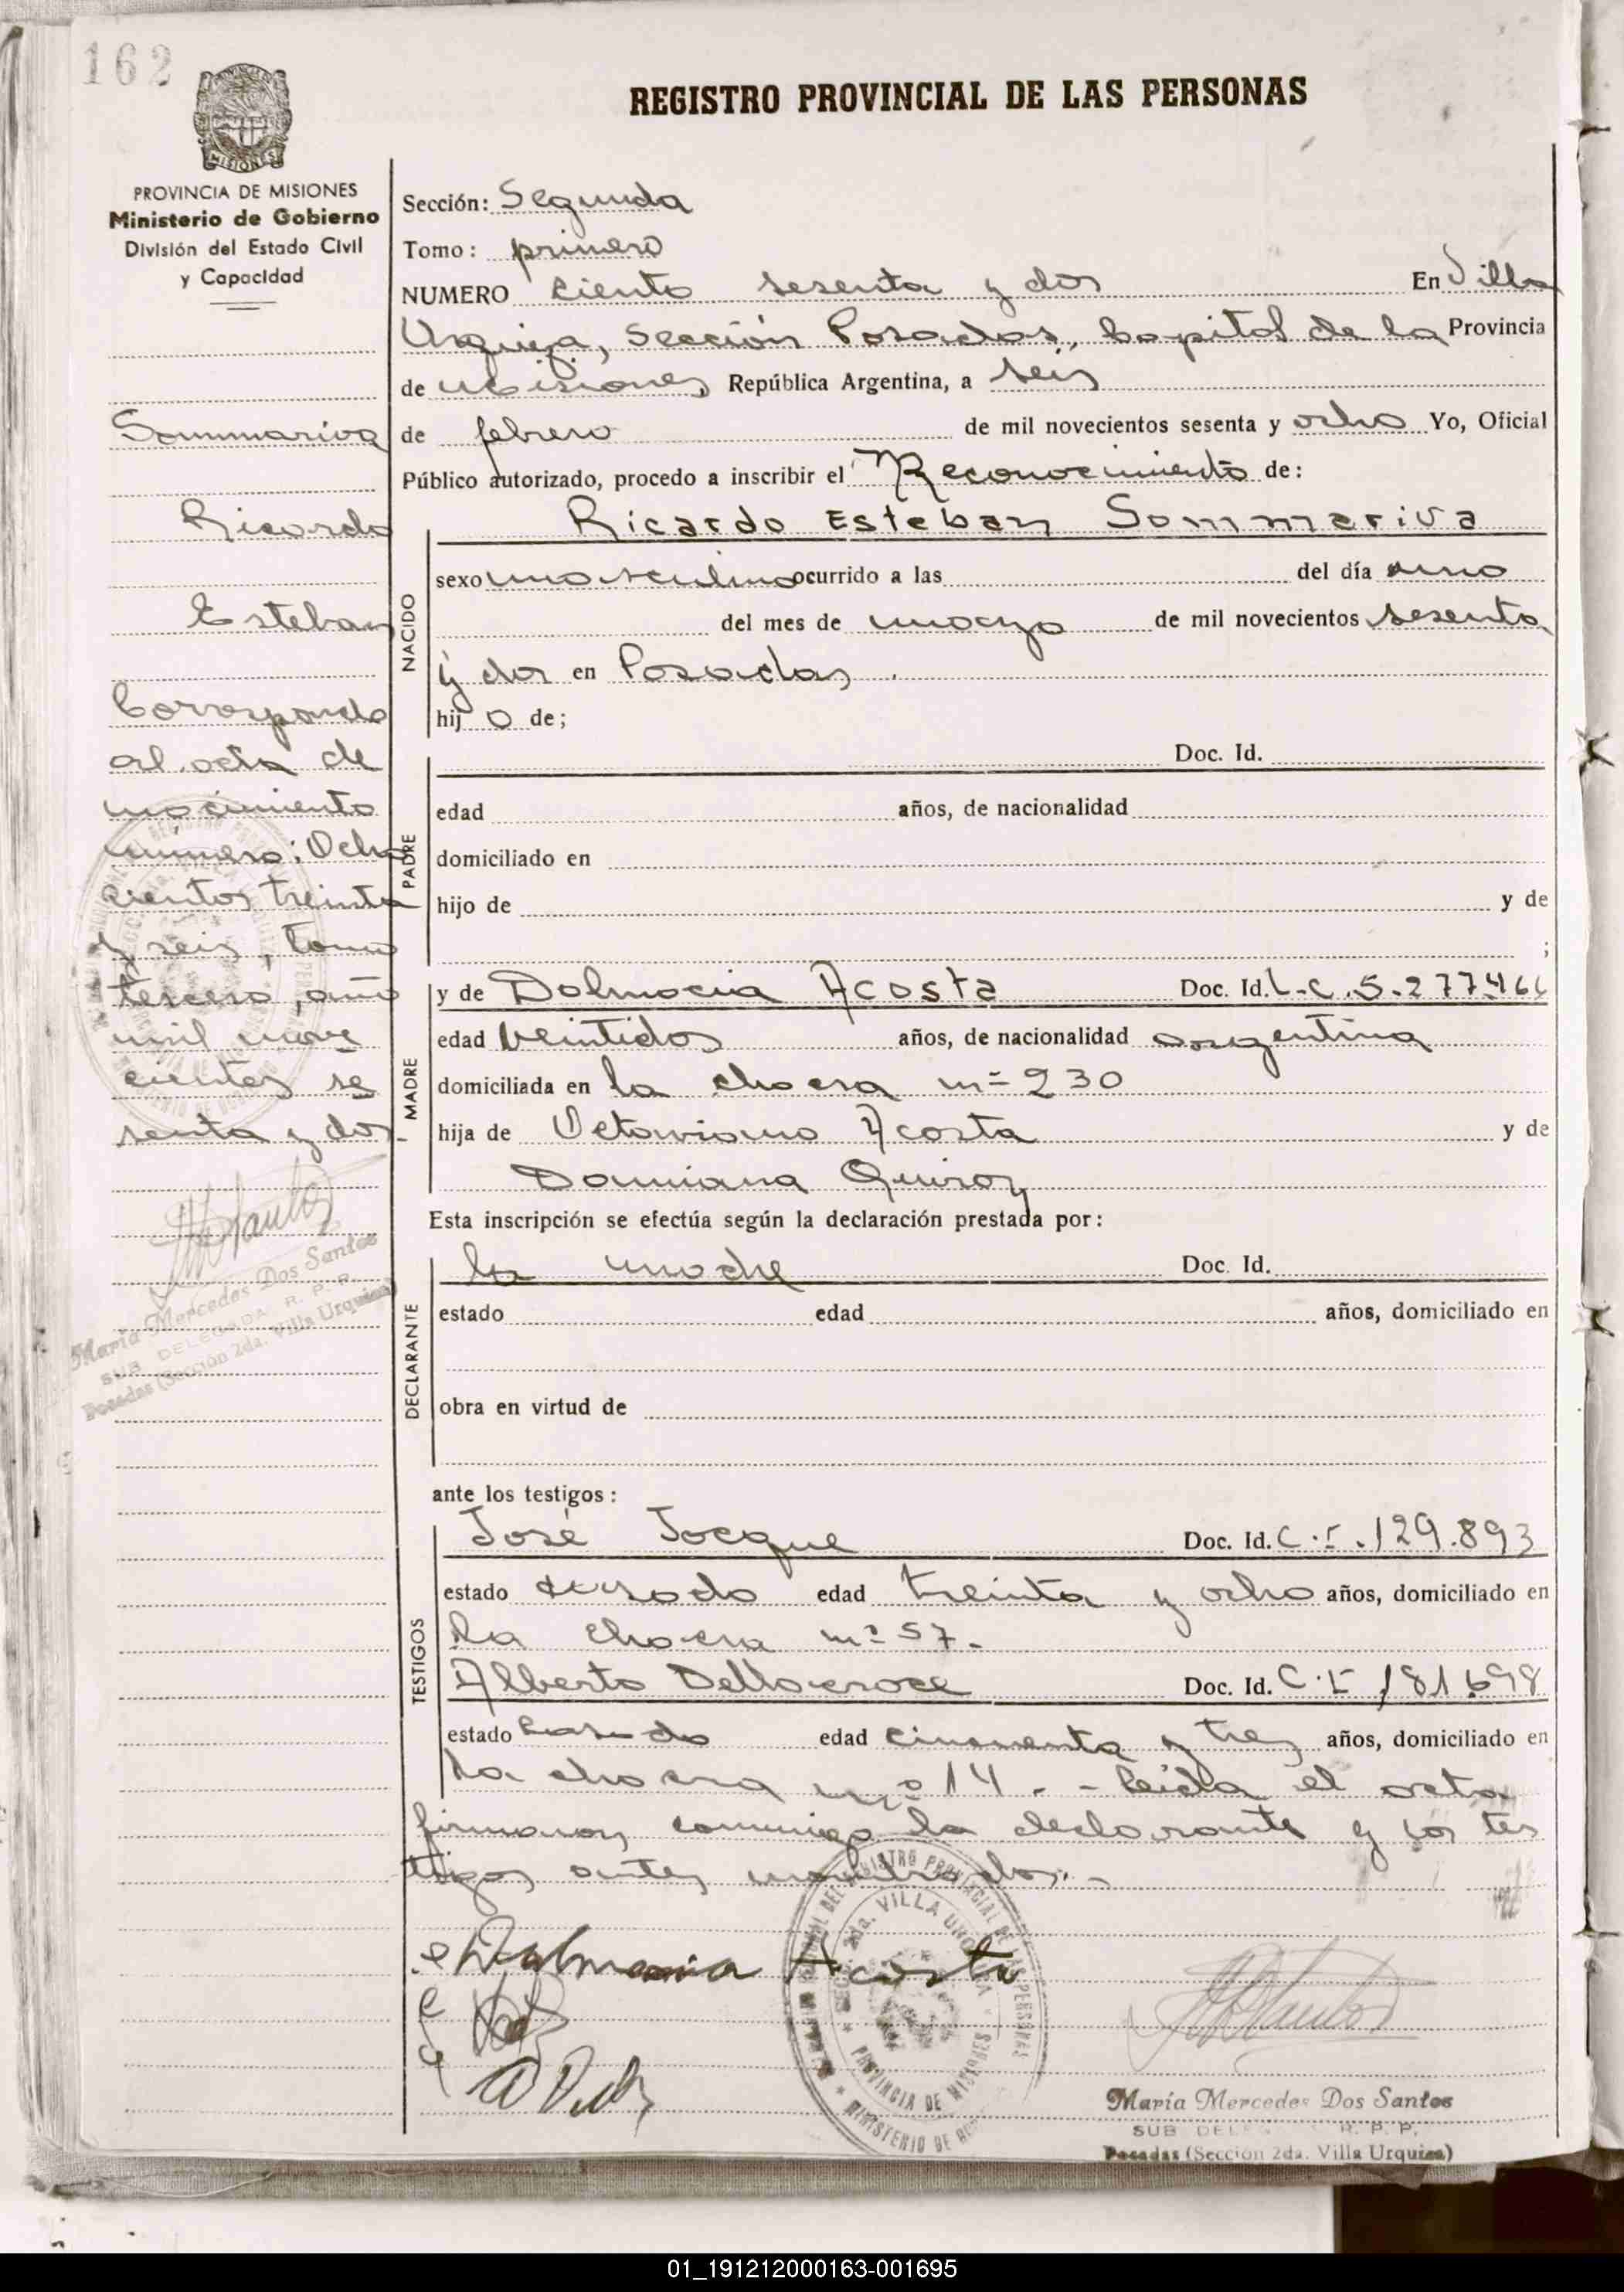 162
REGISTRO PROVINCIAL DE LAS PERSONAS
MISIONES
PROVINCIA DE MISIONES
Ministerio de Gobierno
División del Estado Civil
y Capacidad
Sommariva
Ricardo
Esteban
Corresponde
al acta de
nacimiento
número: Ocho
cientos treinta
y seis, tomo
tercero, año
mil nove
cientos se
senta y dos.
María Mercedes Dos Santos
SUB DELEGADA R. P. P.
Posadas (Sección 2da. Villa Urquiza)
Sección: Segunda
Tomo: primero
NUMERO ciento sesenta y dos En Villa
Urquiza, Sección Posadas, Capital de la Provincia
de Misiones República Argentina, a seis
de febrero de mil novecientos sesenta y ocho Yo, Oficial
Público autorizado, procedo a inscribir el Reconocimiento de:
NACIDO
Ricardo Esteban Sommariva
sexo masculino ocurrido a las del día uno
del mes de mayo de mil novecientos sesenta
y dos en Posadas
hij o de;
PADRE
Doc. Id.
edad años, de nacionalidad
domiciliado en
hijo de y de
;
MADRE
y de Dalmacia Acosta Doc. Id. L.C. 5.277.466
edad veintidos años, de nacionalidad argentina
domiciliada en la chacra nº 230
hija de Octaviano Acosta y de
Damiana Quiroz
Esta inscripción se efectúa según la declaración prestada por:
DECLARANTE
la madre Doc. Id.
estado edad años, domiciliado en
obra en virtud de
ante los testigos:
TESTIGOS
José Jocque Doc. Id. C.I. 129.893
estado casado edad treinta y ocho años, domiciliado en
la chacra nº 57.
Alberto Dellacroce Doc. Id. C.I 181698
estado casado edad cincuenta y tres años, domiciliado en
la chacra nº 14. - Leída el acta
firmaron conmigo la declarante y los tes
tigos antes nombrados. -
Dalmacia Acosta
VILLA URQUIZA
PROVINCIA DE MISIONES
María Mercedes Dos Santos
SUB DELE R. P. P.
Posadas (Sección 2da. Villa Urquiza)
01_191212000163-001695